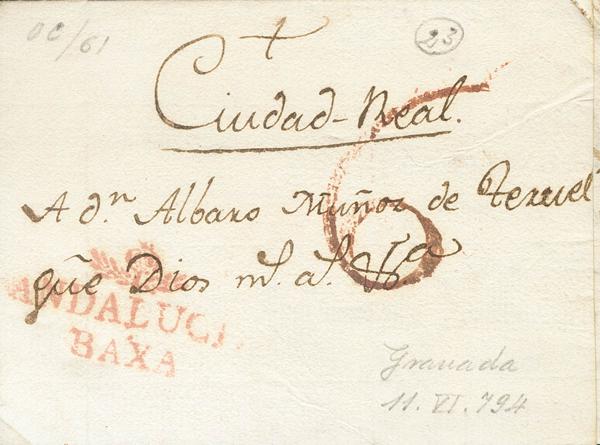 OC/61
+
23
Ciudad-Real.
6
A d.n Albaro Muñoz de Teruel
gñe Dios m.s a.s
ANDALUCIA
BAXA
Granada
11. VI. 794